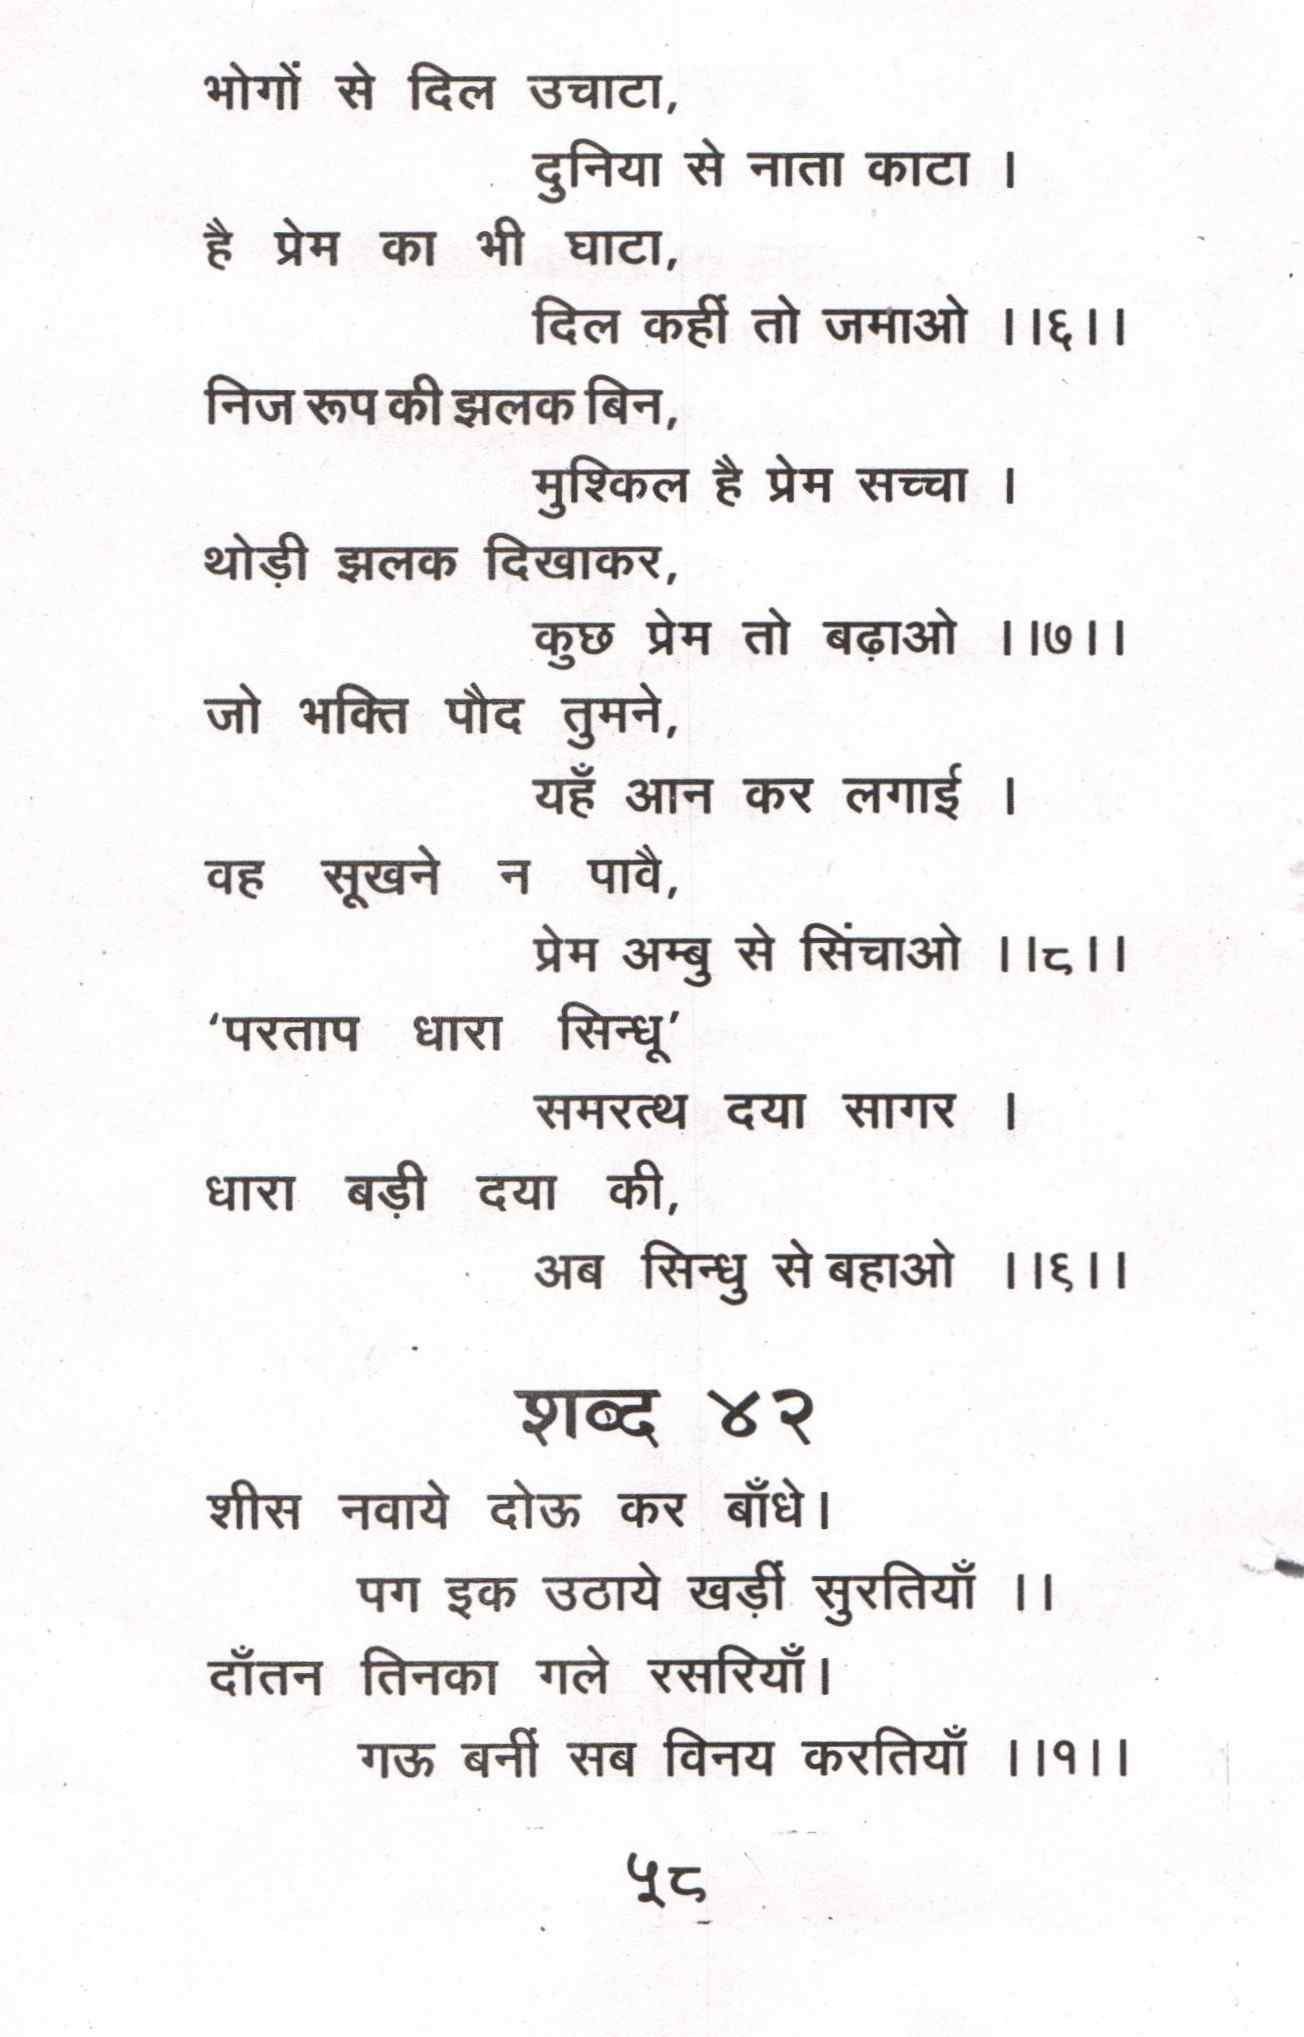 भोगों से दिल उचाटा,
दुनिया से नाता काटा ।
है प्रेम का भी घाटा,
दिल कहीं तो जमाओ ।।६।।
निज रूप की झलक बिन,
मुश्किल है प्रेम सच्चा ।
थोड़ी झलक दिखाकर,
कुछ प्रेम तो बढ़ाओ ।।७।।
जो भक्ति पौद तुमने,
यहँ आन कर लगाई ।
वह सूखने न पावै,
प्रेम अम्बु से सिंचाओ ।।८।।
‘परताप धारा सिन्धू’
समरत्थ दया सागर ।
धारा बड़ी दया की,
अब सिन्धु से बहाओ ।।९।।
शब्द ४२
शीस नवाये दोऊ कर बाँधे।
पग इक उठाये खड़ीं सुरतियाँ ।।
दाँतन तिनका गले रसरियाँ।
गऊ बनीं सब विनय करतियाँ ।।१।।
५८